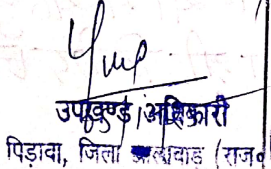 उपखण्ड अधिकारी
पिड़ावा, जिला झालावाड़ (राज०